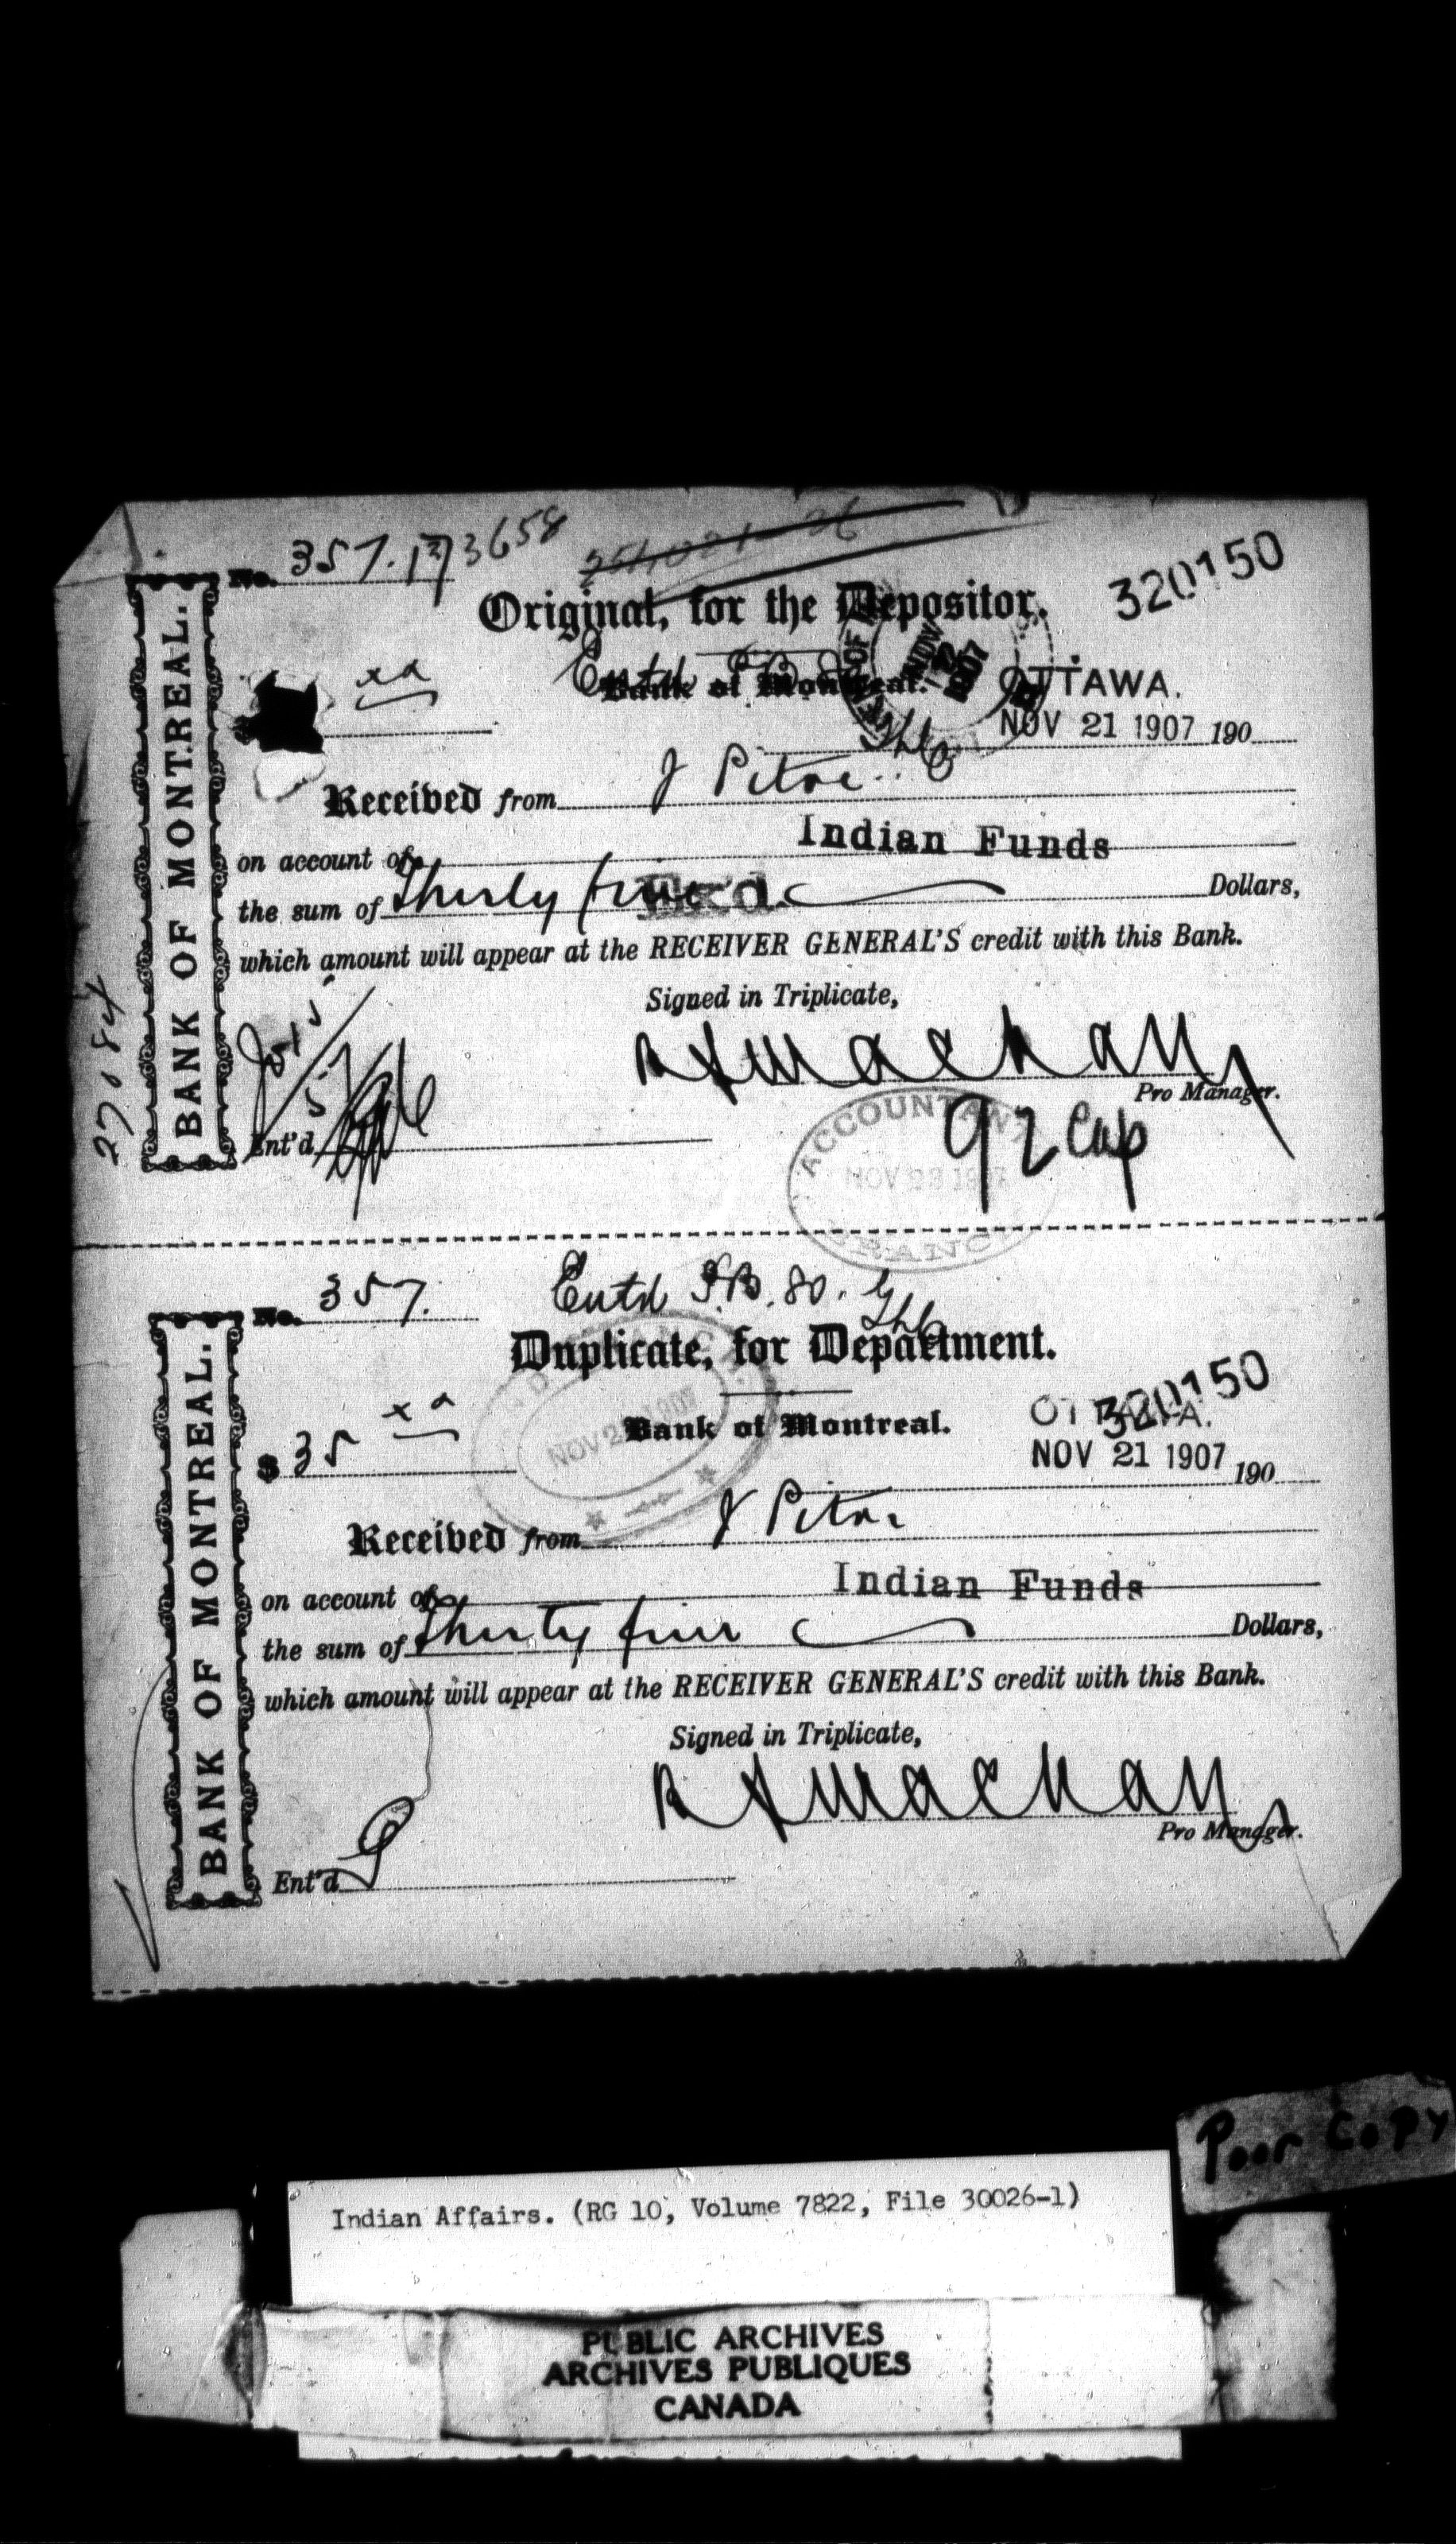 No. 357. 173658
320150
Original, for the Depositor.
Entd
Bank of Montreal.
OTTAWA.
NOV 21 1907 190
Received from J Pitre
on account of Indian Funds
the sum of Thirty five Dollars,
which amount will appear at the RECEIVER GENERAL'S credit with this Bank.
Signed in Triplicate,
Pro Manager.
Ent'd
92 Cap
ACCOUNTANT
NOV 23 1907
BRANCH
BANK OF MONTREAL.
27084
No. 357.
Entd P.B. 80.
Duplicate, for Department.
320150
$35 xx
Bank of Montreal.
OTTAWA.
NOV 21 1907 190
Received from J Pitre
on account of Indian Funds
the sum of Thirty five Dollars,
which amount will appear at the RECEIVER GENERAL'S credit with this Bank.
Signed in Triplicate,
Pro Manager.
Ent'd
BANK OF MONTREAL.
Poor Copy
Indian Affairs. (RG 10, Volume 7822, File 30026-1)
PUBLIC ARCHIVES
ARCHIVES PUBLIQUES
CANADA